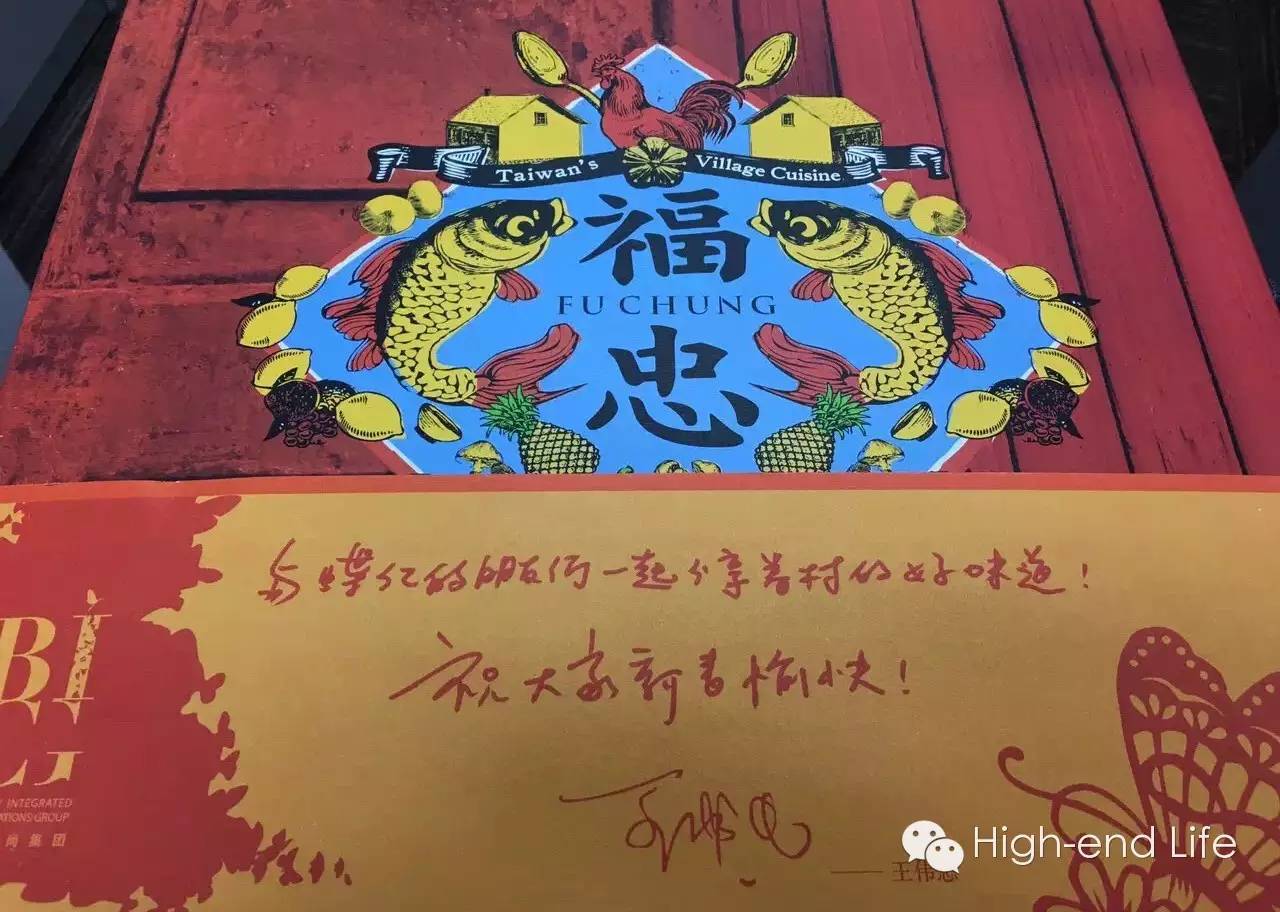 Taiwan's Village Cuisine
福
FU CHUNG
忠
与蝶亿的朋友们一起分享眷村的好味道!
祝大家新春愉快!
BI
G
INTEGRATED
ATIONS GROUP
尚集团
—— 王伟忠
High-end Life